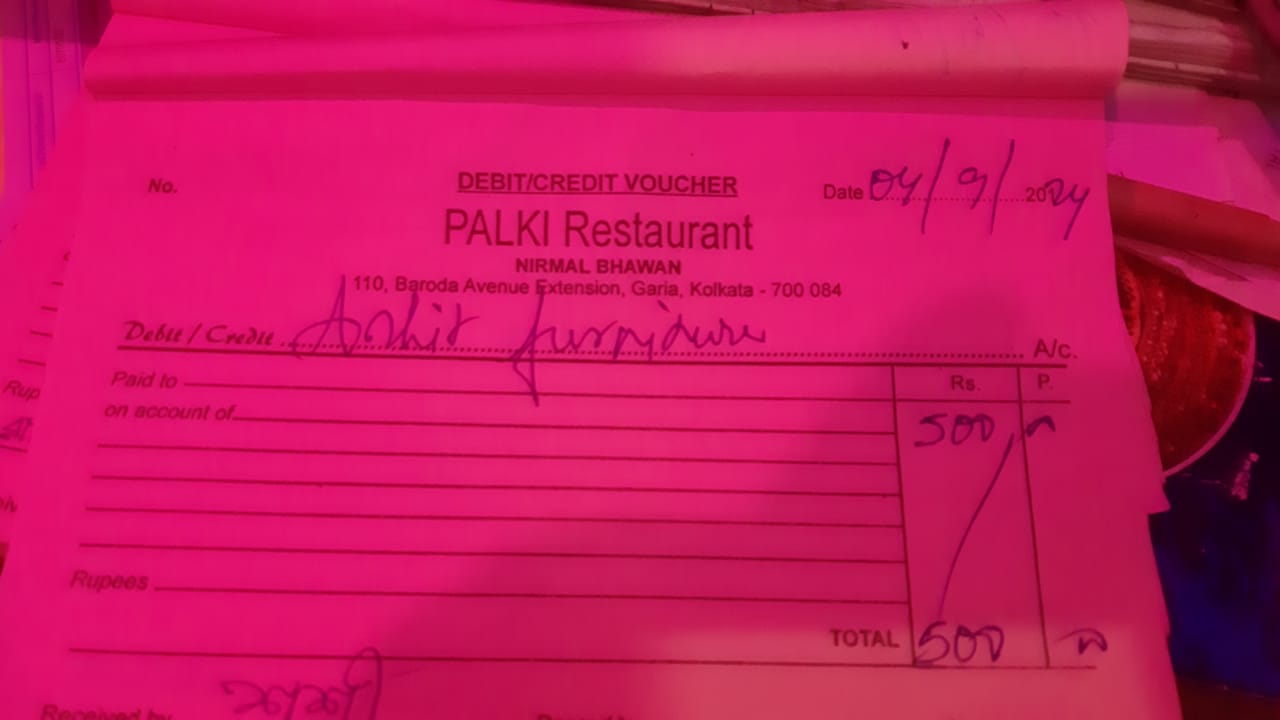 No.
DEBIT/CREDIT VOUCHER
Date 04/9/2024
PALKI Restaurant
NIRMAL BHAWAN
110, Baroda Avenue Extension, Garia, Kolkata - 700 084
Debit / Credit furniture A/c.
Paid to
Rs. P.
on account of
500
Rupees
TOTAL 500
Received by